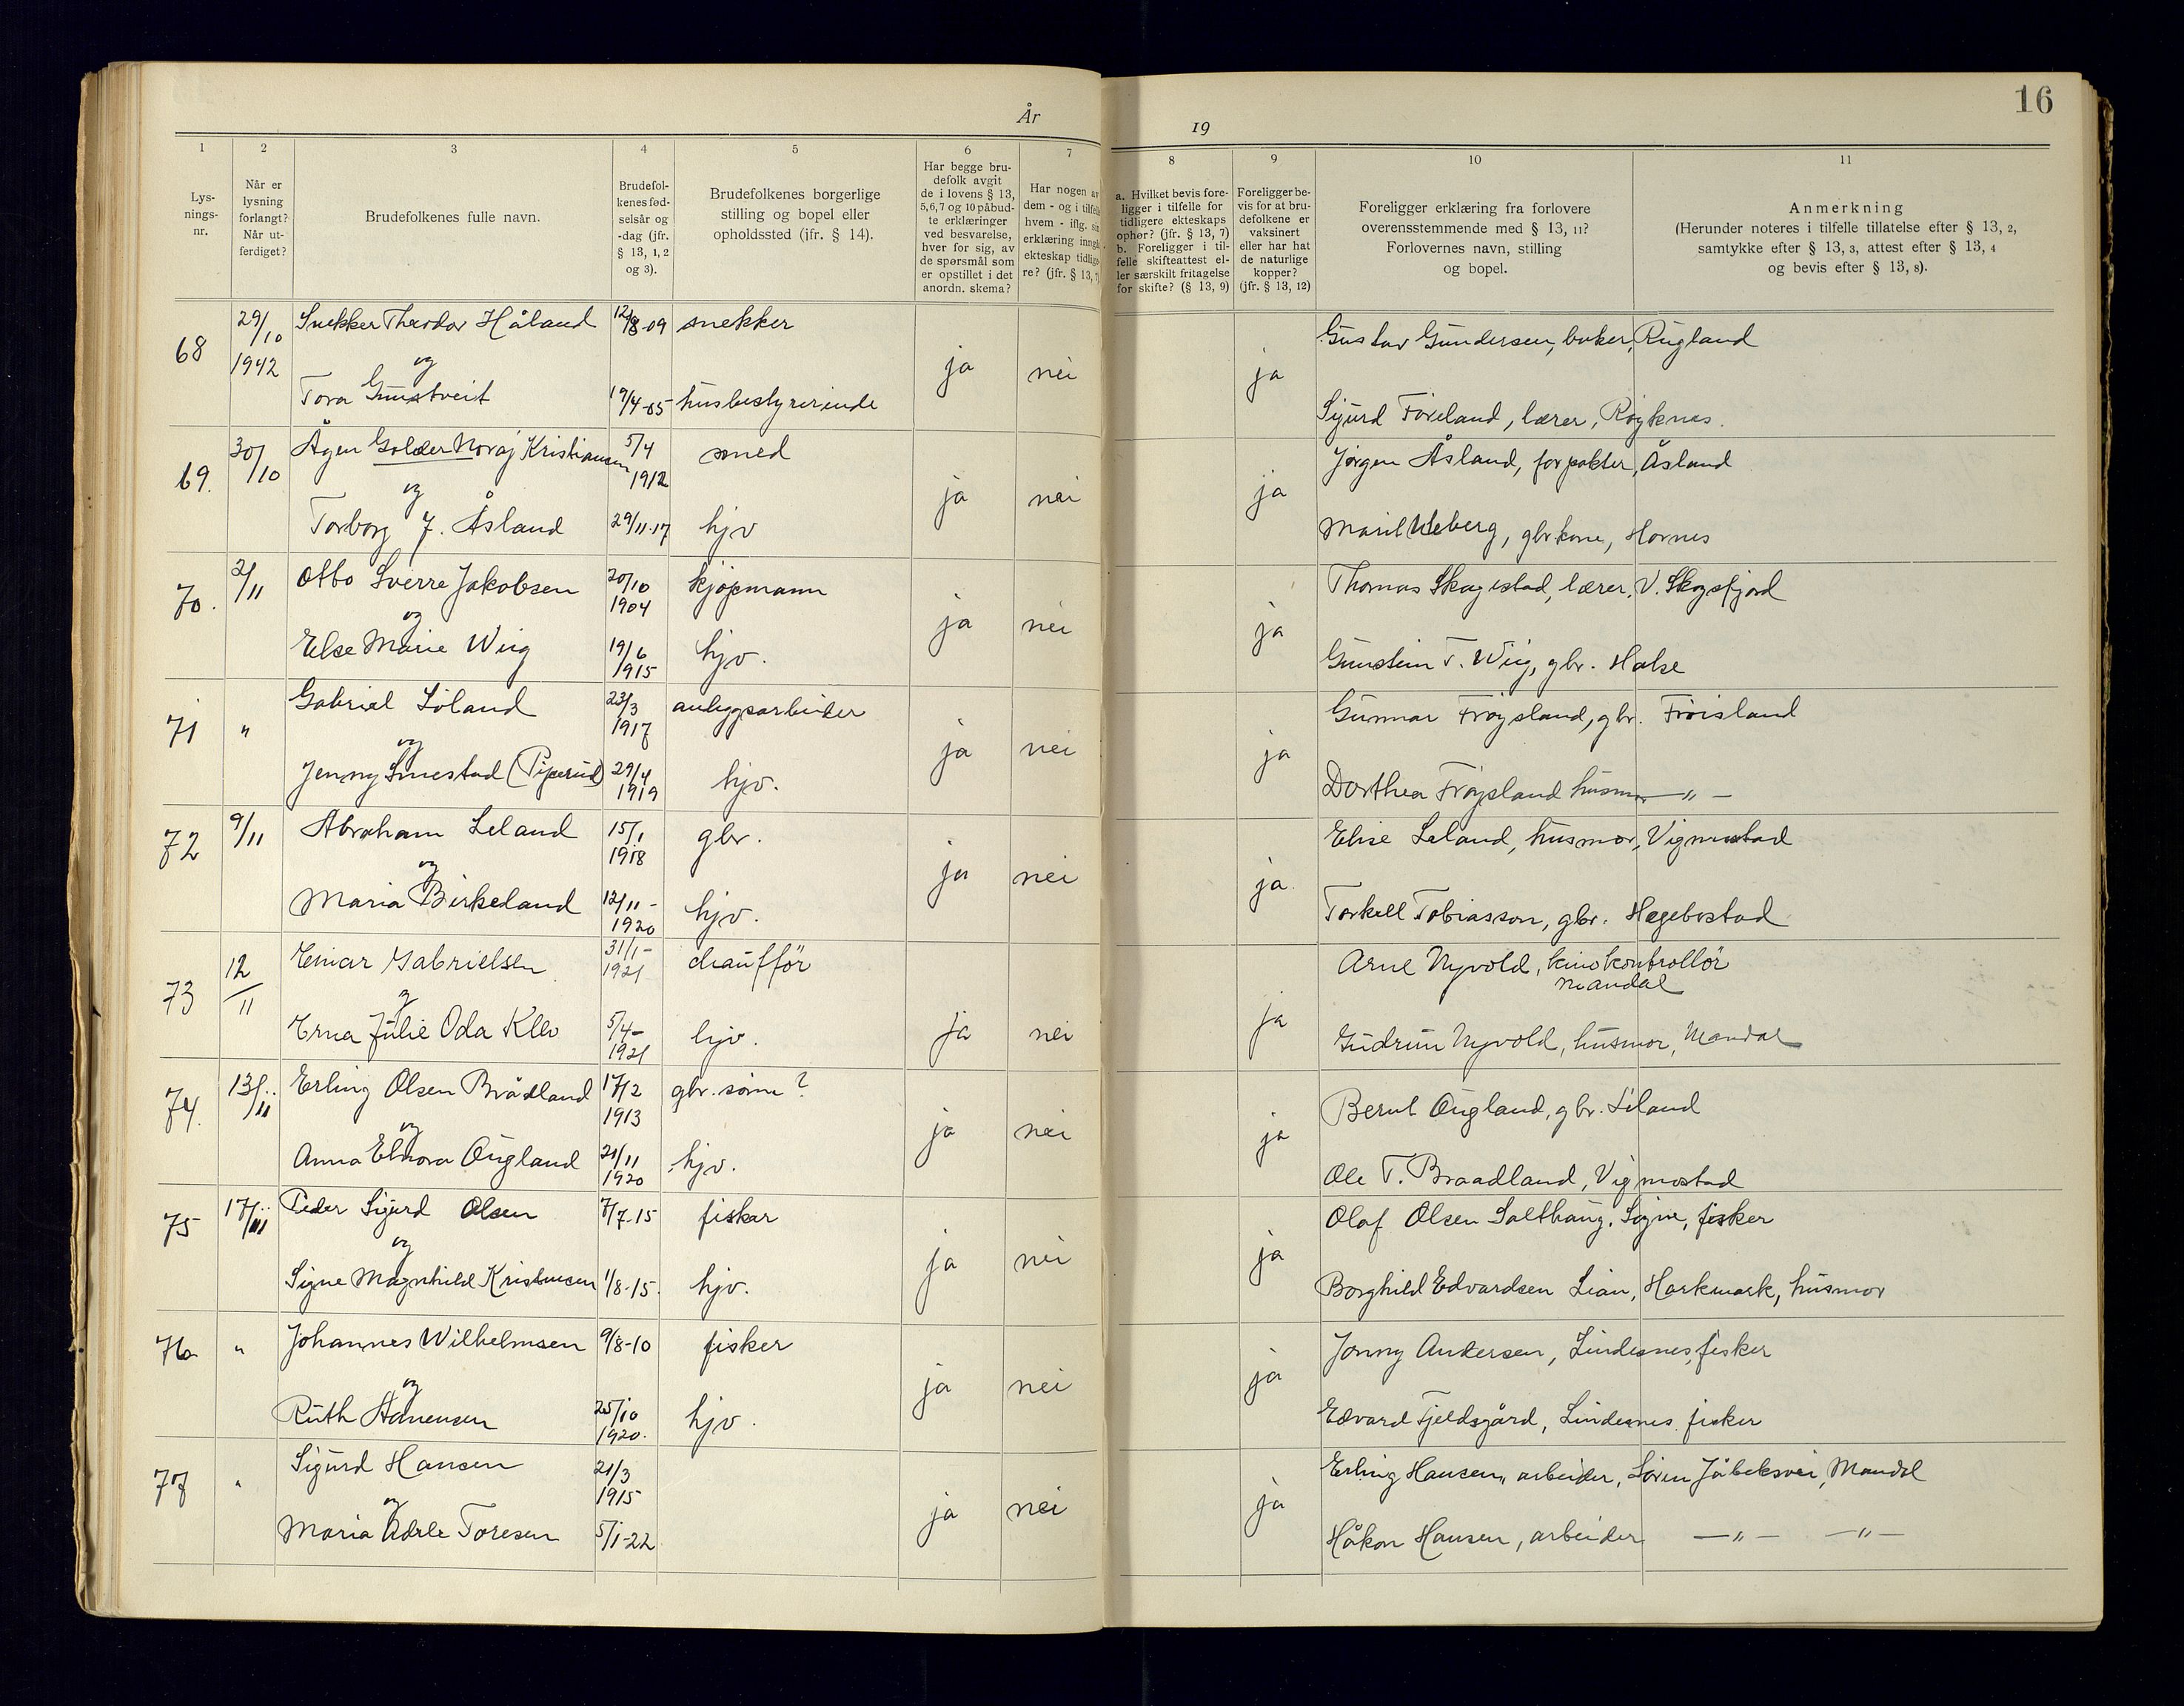 16
År
19
1
2
3
4
5
6
7
8
9
10
11
Lys-
nings-
nr.
Når er
lysning
forlangt?
Når ut-
ferdiget?
Brudefolkenes fulle navn.
Brudefol-
kenes fød-
selsår og
-dag (jfr.
§ 13, 1, 2
og 3).
Brudefolkenes borgerlige
stilling og bopel eller
opholdssted (jfr. § 14).
Har begge bru-
defolk avgit
de i lovens § 13,
5, 6, 7 og 10 påbud-
te erklæringer
ved besvarelse,
hver for sig, av
de spørsmål som
er opstillet i det
anordn. skema?
Har nogen av
dem - og i tilfelle
hvem - iflg. sin
erklæring inngå
ekteskap tidlige-
re? (jfr. § 13, 7)
a. Hvilket bevis fore-
ligger i tilfelle for
tidligere ekteskaps
ophør? (jfr. § 13, 7)
b. Foreligger i til-
felle skifteattest el-
ler særskilt fritagelse
for skifte? (§ 13, 9)
Foreligger be-
vis for at bru-
defolkene er
vaksinert
eller har hat
de naturlige
kopper?
(jfr. § 13, 12)
Foreligger erklæring fra forlovere
overensstemmende med § 13, 11?
Forlovernes navn, stilling
og bopel.
Anmerkning
(Herunder noteres i tilfelle tillatelse efter § 13, 2,
samtykke efter § 13, 3, attest efter § 13, 4
og bevis efter § 13, 8).
68 29/10 Snekker Theodor Håland 12/8-09 snekker Gustav Gundersen, baker, Rugland
1942 og ja nei ja
Tora 19/4-05 husbestyrerinde Sigurd Föreland, lærer, Röyknes.
69. 30/10 Ågen Golder Noraj Kristiansen 5/4 1912 smed Jörgen Åsland, forpakter, Åsland
og ja nei ja
Torborg J. Åsland 29/11-17 hjv Marit Ueberg, gbrkone, Hornes
70. 2/11 Otto Sverre Jakobsen 20/10 1904 kjøpmann Thomas Skagestad, lærer, V. Skogsfjord
og ja nei ja
Else Marie Wiig 19/6 1915 hjv. Gunstein T. Wiig, gbr. Halse
71 " Gabriel Löland 23/3 1917 anleggsarbeider Gunnar Fröysland, gbr. Fröisland
og ja nei ja
Jenny Smestad (Piperud) 29/4 1919 hjv. Dorthea Fröysland husmor — " —
72 9/11 Abraham Leland 15/1 1918 gbr. Elise Leland, husmor, Vigmostad
og ja nei ja
Maria Birkeland 12/11- 1920 hjv. Torkell Tobiasson, gbr. Hægebostad
73 12/11 Einar Gabrielsen 31/1- 1921 chaufför Arne Nyvold, kinokontrollör
Mandal
og ja nei ja
Erna Julie Oda Klev 5/4- 1921 hjv. Gudrun Nyvold, husmor, Mandal
74. 13/11 Erling Olsen Brådland 17/2 1913 gbr. sönn? Bernt Ougland, gbr. Liland
og ja nei ja
Anna Elnora Ougland 21/11 1920 hjv. Ole T. Braadland, Vigmostad
75 17/11 Peder Sigurd Olsen 7/7-15 fisker Olaf Olsen Salthaug, Sögne, fisker
og ja nei ja
Signe Magnhild Kristensen 1/8-15. hjv. Borghild Edvardsen Lian, Harkmark, husmor
76 " Johannes Wilhelmsen 9/8-10 fisker Jonny Andersen, Lindesnes, fisker
og ja nei ja
Ruth Aanensen 25/10 1920. hjv. Edvard Fjeldsgård, Lindesnes fisker
77 " Sigurd Hansen 21/3 1915 Erling Hansen, arbeider, Sören Jåbeksvei, Mandal
og ja nei ja
Maria Adele Toresen 5/1-22 Håkon Hansen, arbeider — " — — " —